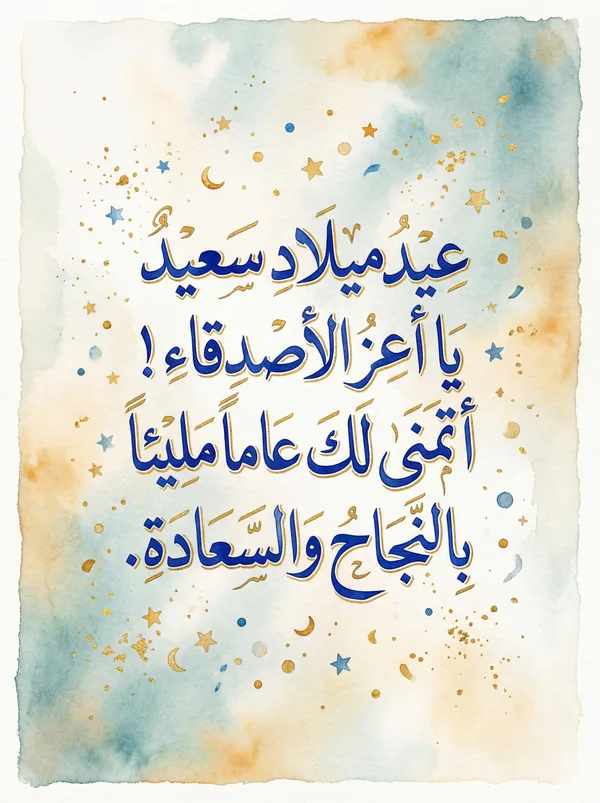 عِيْدُ ميلَادِ سَعيْدٌ
يَا أَعِزُ الأَصْدِقاءِ!
أَتَمَنَى لَكَ عَاماً مَلِيْئاً
بِالنَّجَاحُ وَالسَّعَادَةِ.